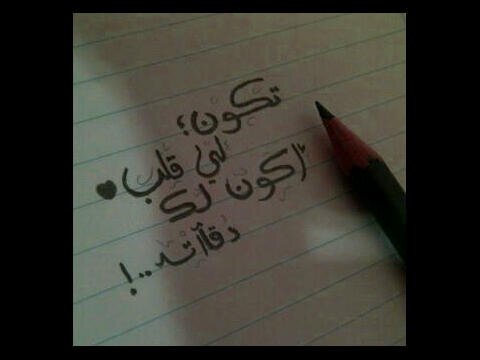 تكون؛
لي قلب ♥
أكون لك
دقاته..!